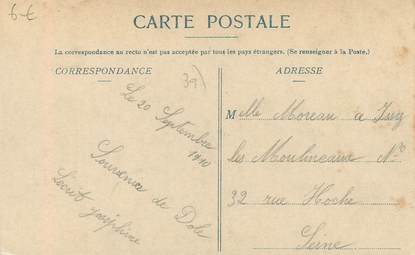 6-€
CARTE POSTALE
La correspondance au recto n'est pas acceptée par tous les pays étrangers. (Se renseigner à la Poste.)
CORRESPONDANCE
39)
Le 20 Septembre
1910
Souvenir de Dole
Joséphine
ADRESSE
Melle Moreau a Issy
les Moulineaux No
32 rue Hoche
Seine